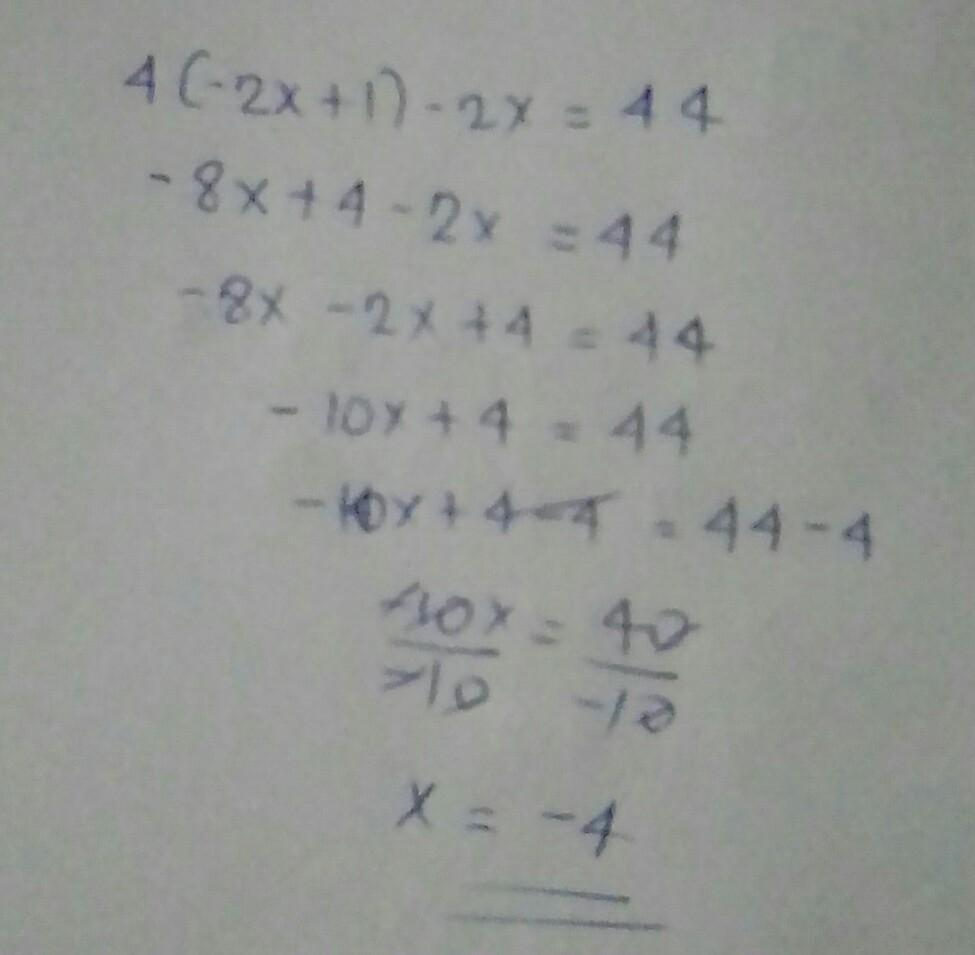 4(-2x+1)-2x = 44
-8x+4-2x = 44
-8x -2x +4 = 44
-10x+4 = 44
-10x+4-4 = 44-4
-10x/-10 = 40/-10
x = -4